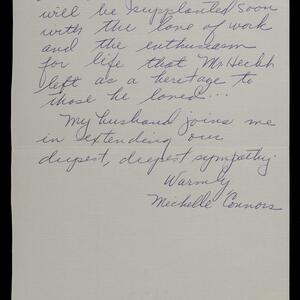 will be supplanted soon
with the love of work
and the enthusiasm
for life that Mr Hecht
left as a heritage to
those he loved...
My husband joins me
in extending our
deepest, deepest sympathy.
Warmly,
Mechelle Connors